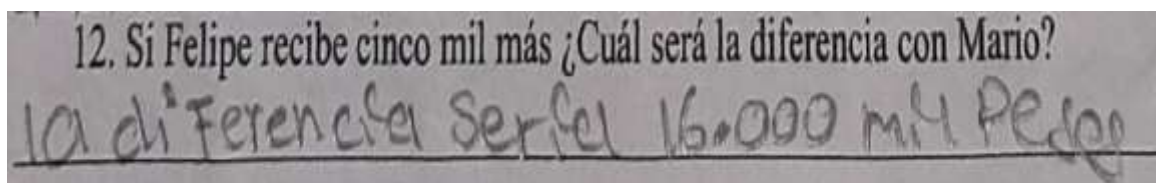 12. Si Felipe recibe cinco mil más ¿Cuál será la diferencia con Mario?
la diferencia Serìa 16.000 mil Pesos